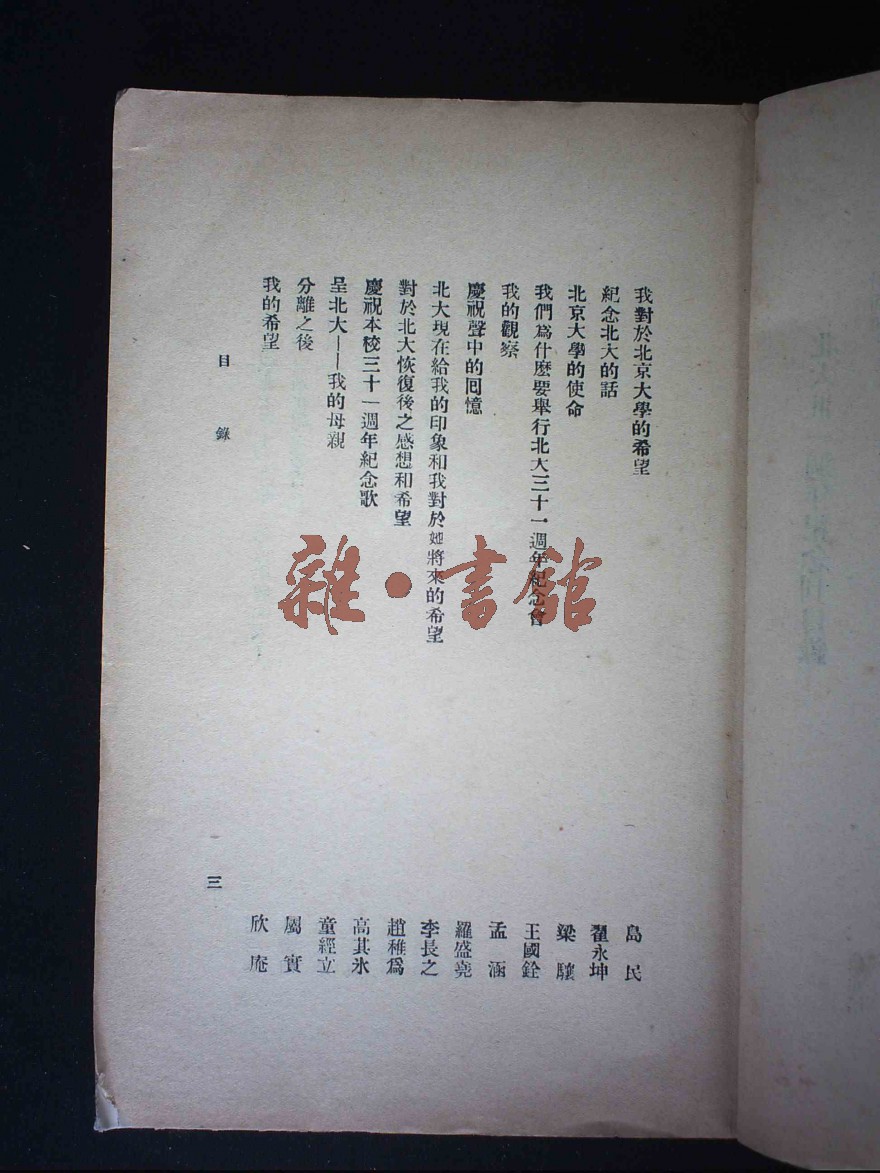 我對於北京大學的希望
島民
紀念北大的話
翟永坤
北京大學的使命
梁驤
我們爲什麼要舉行北大三十一週年紀念會
王國銓
我的觀察
孟涵
慶祝聲中的囘憶
羅盛堯
北大現在給我的印象和我對於她將來的希望
李長之
對於北大恢復後之感想和希望
趙稚爲
慶祝本校三十一週年紀念歌
高其氷
呈北大——我的母親
童經立
分離之後
屬實
我的希望
欣庵
目錄
三
雜·書館